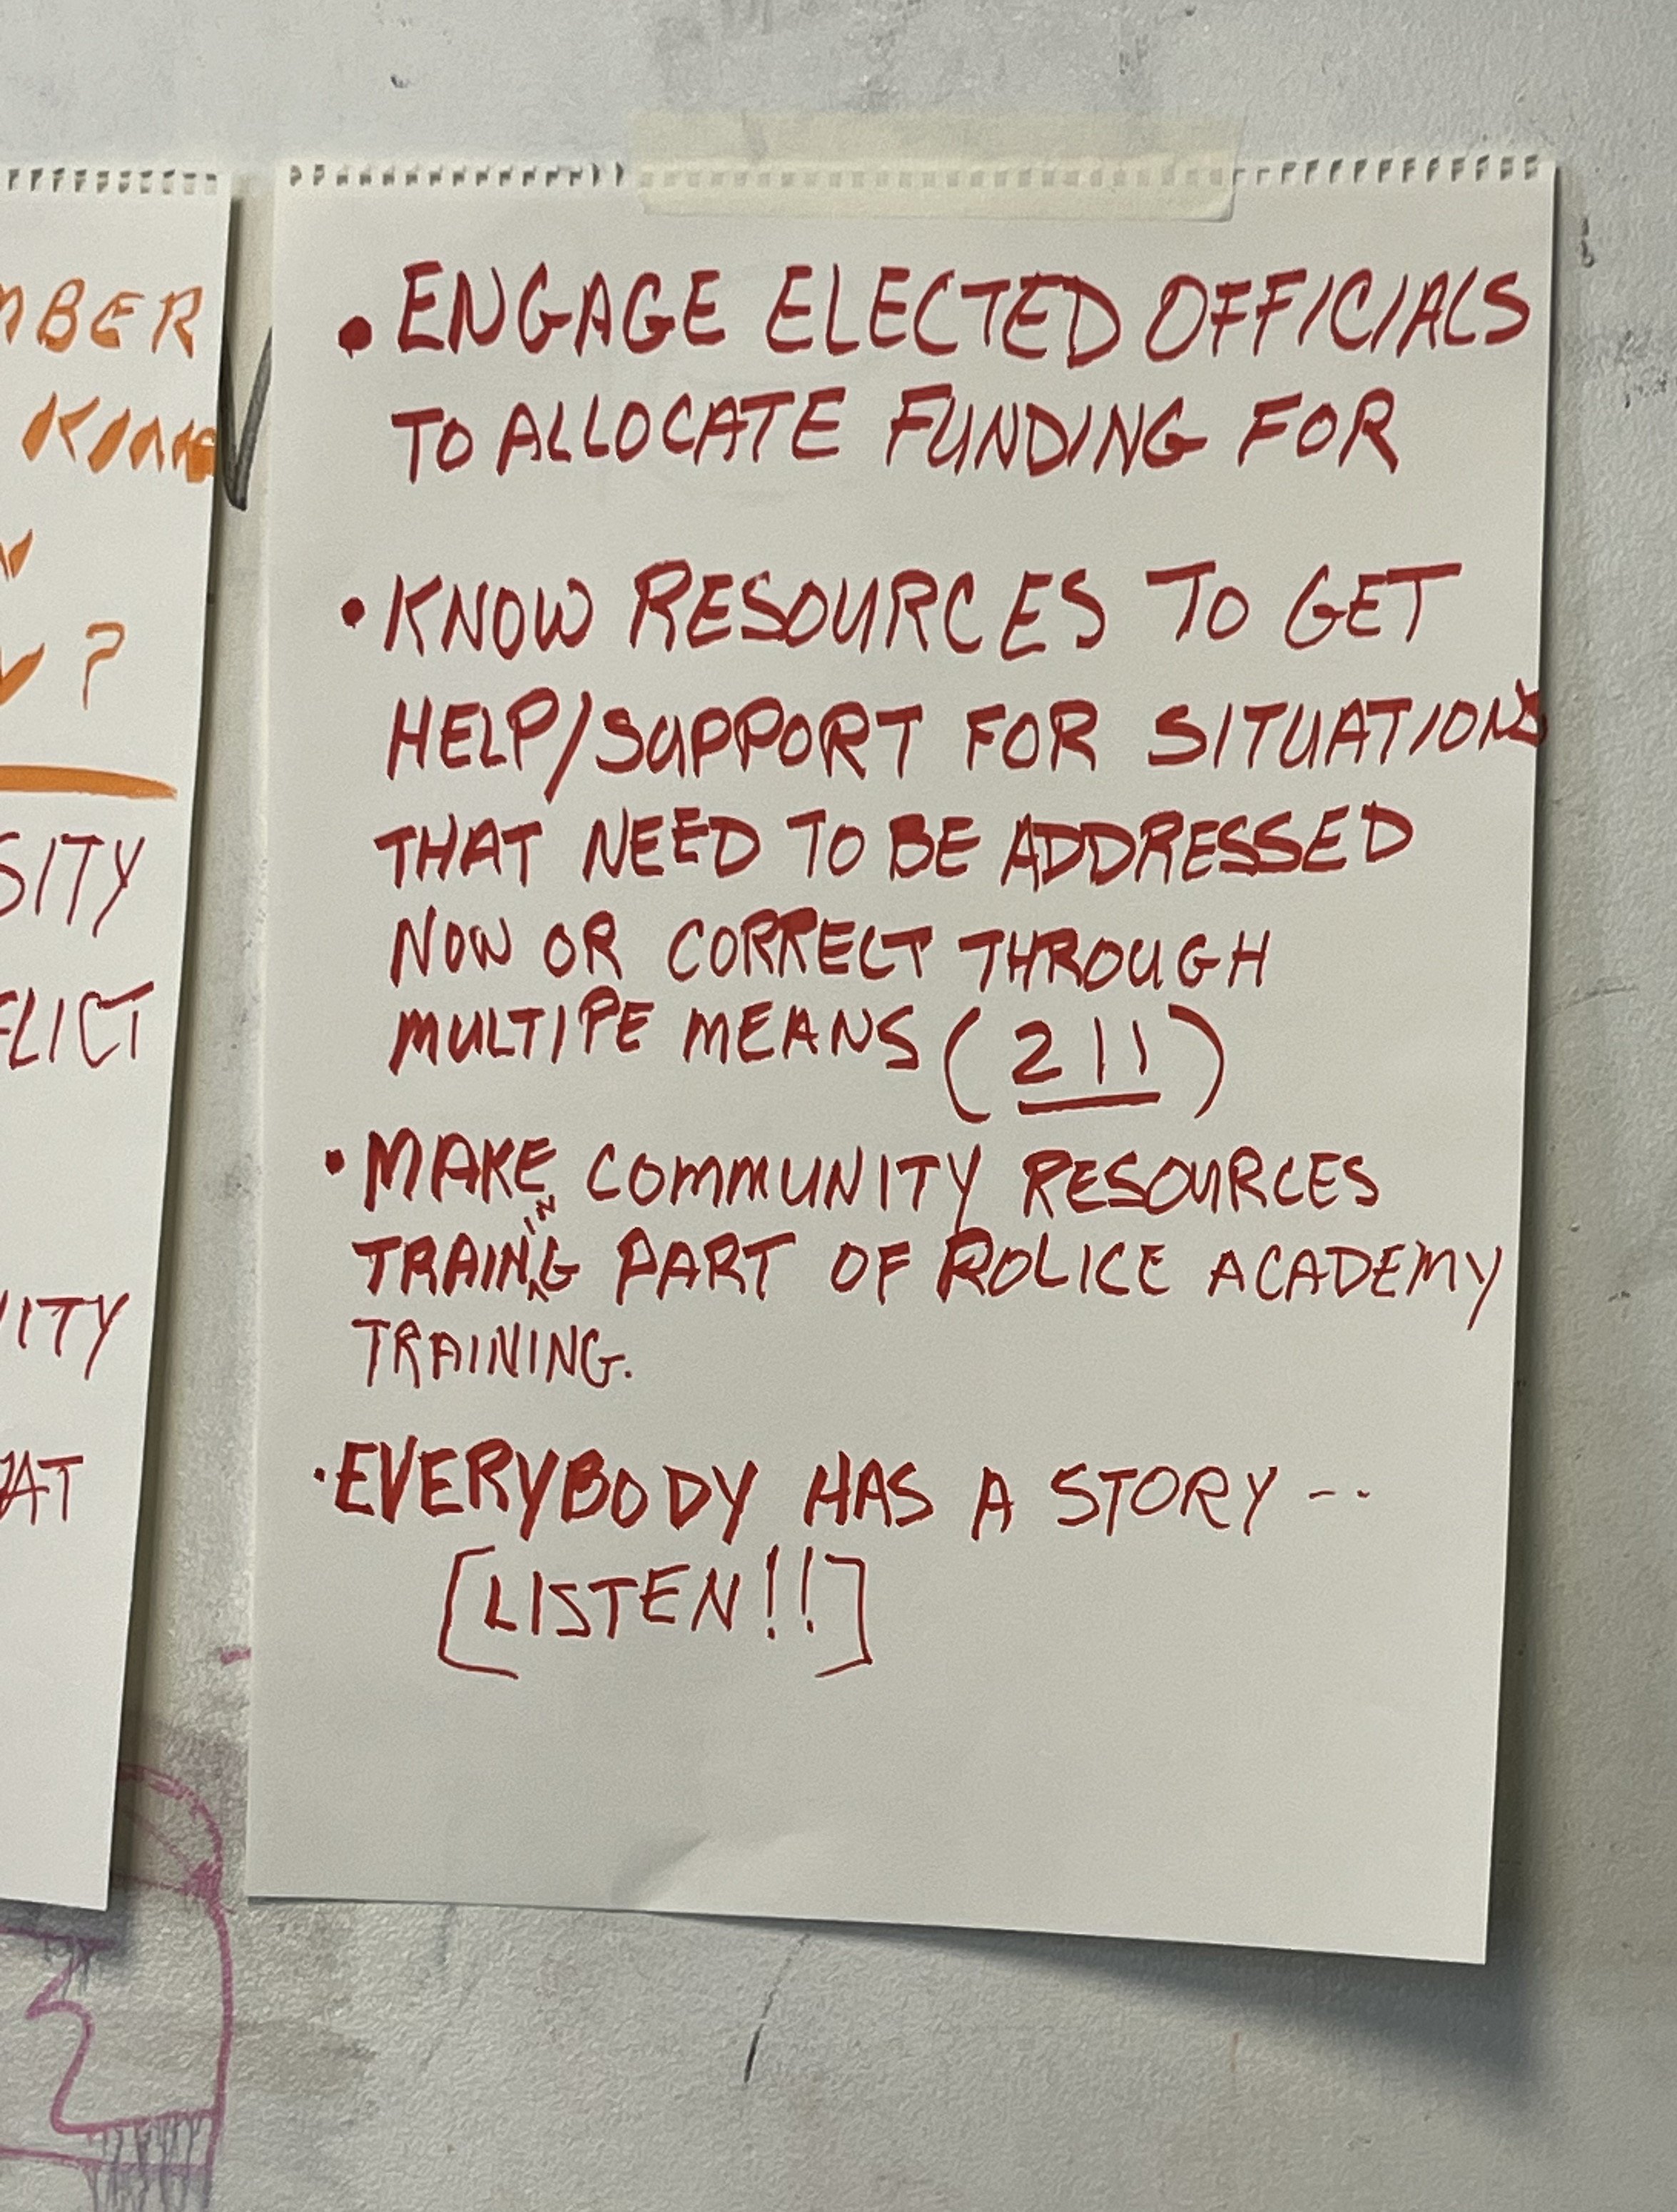 MBER
KING
?
SITY
FLICT
ITY
AT
• ENGAGE ELECTED OFFICIALS
TO ALLOCATE FUNDING FOR
• KNOW RESOURCES TO GET
HELP/SUPPORT FOR SITUATIONS
THAT NEED TO BE ADDRESSED
NOW OR CORRECT THROUGH
MULTIPE MEANS (211)
• MAKE COMMUNITY RESOURCES
TRAINING PART OF POLICE ACADEMY
TRAINING.
• EVERYBODY HAS A STORY ---
[LISTEN!!]